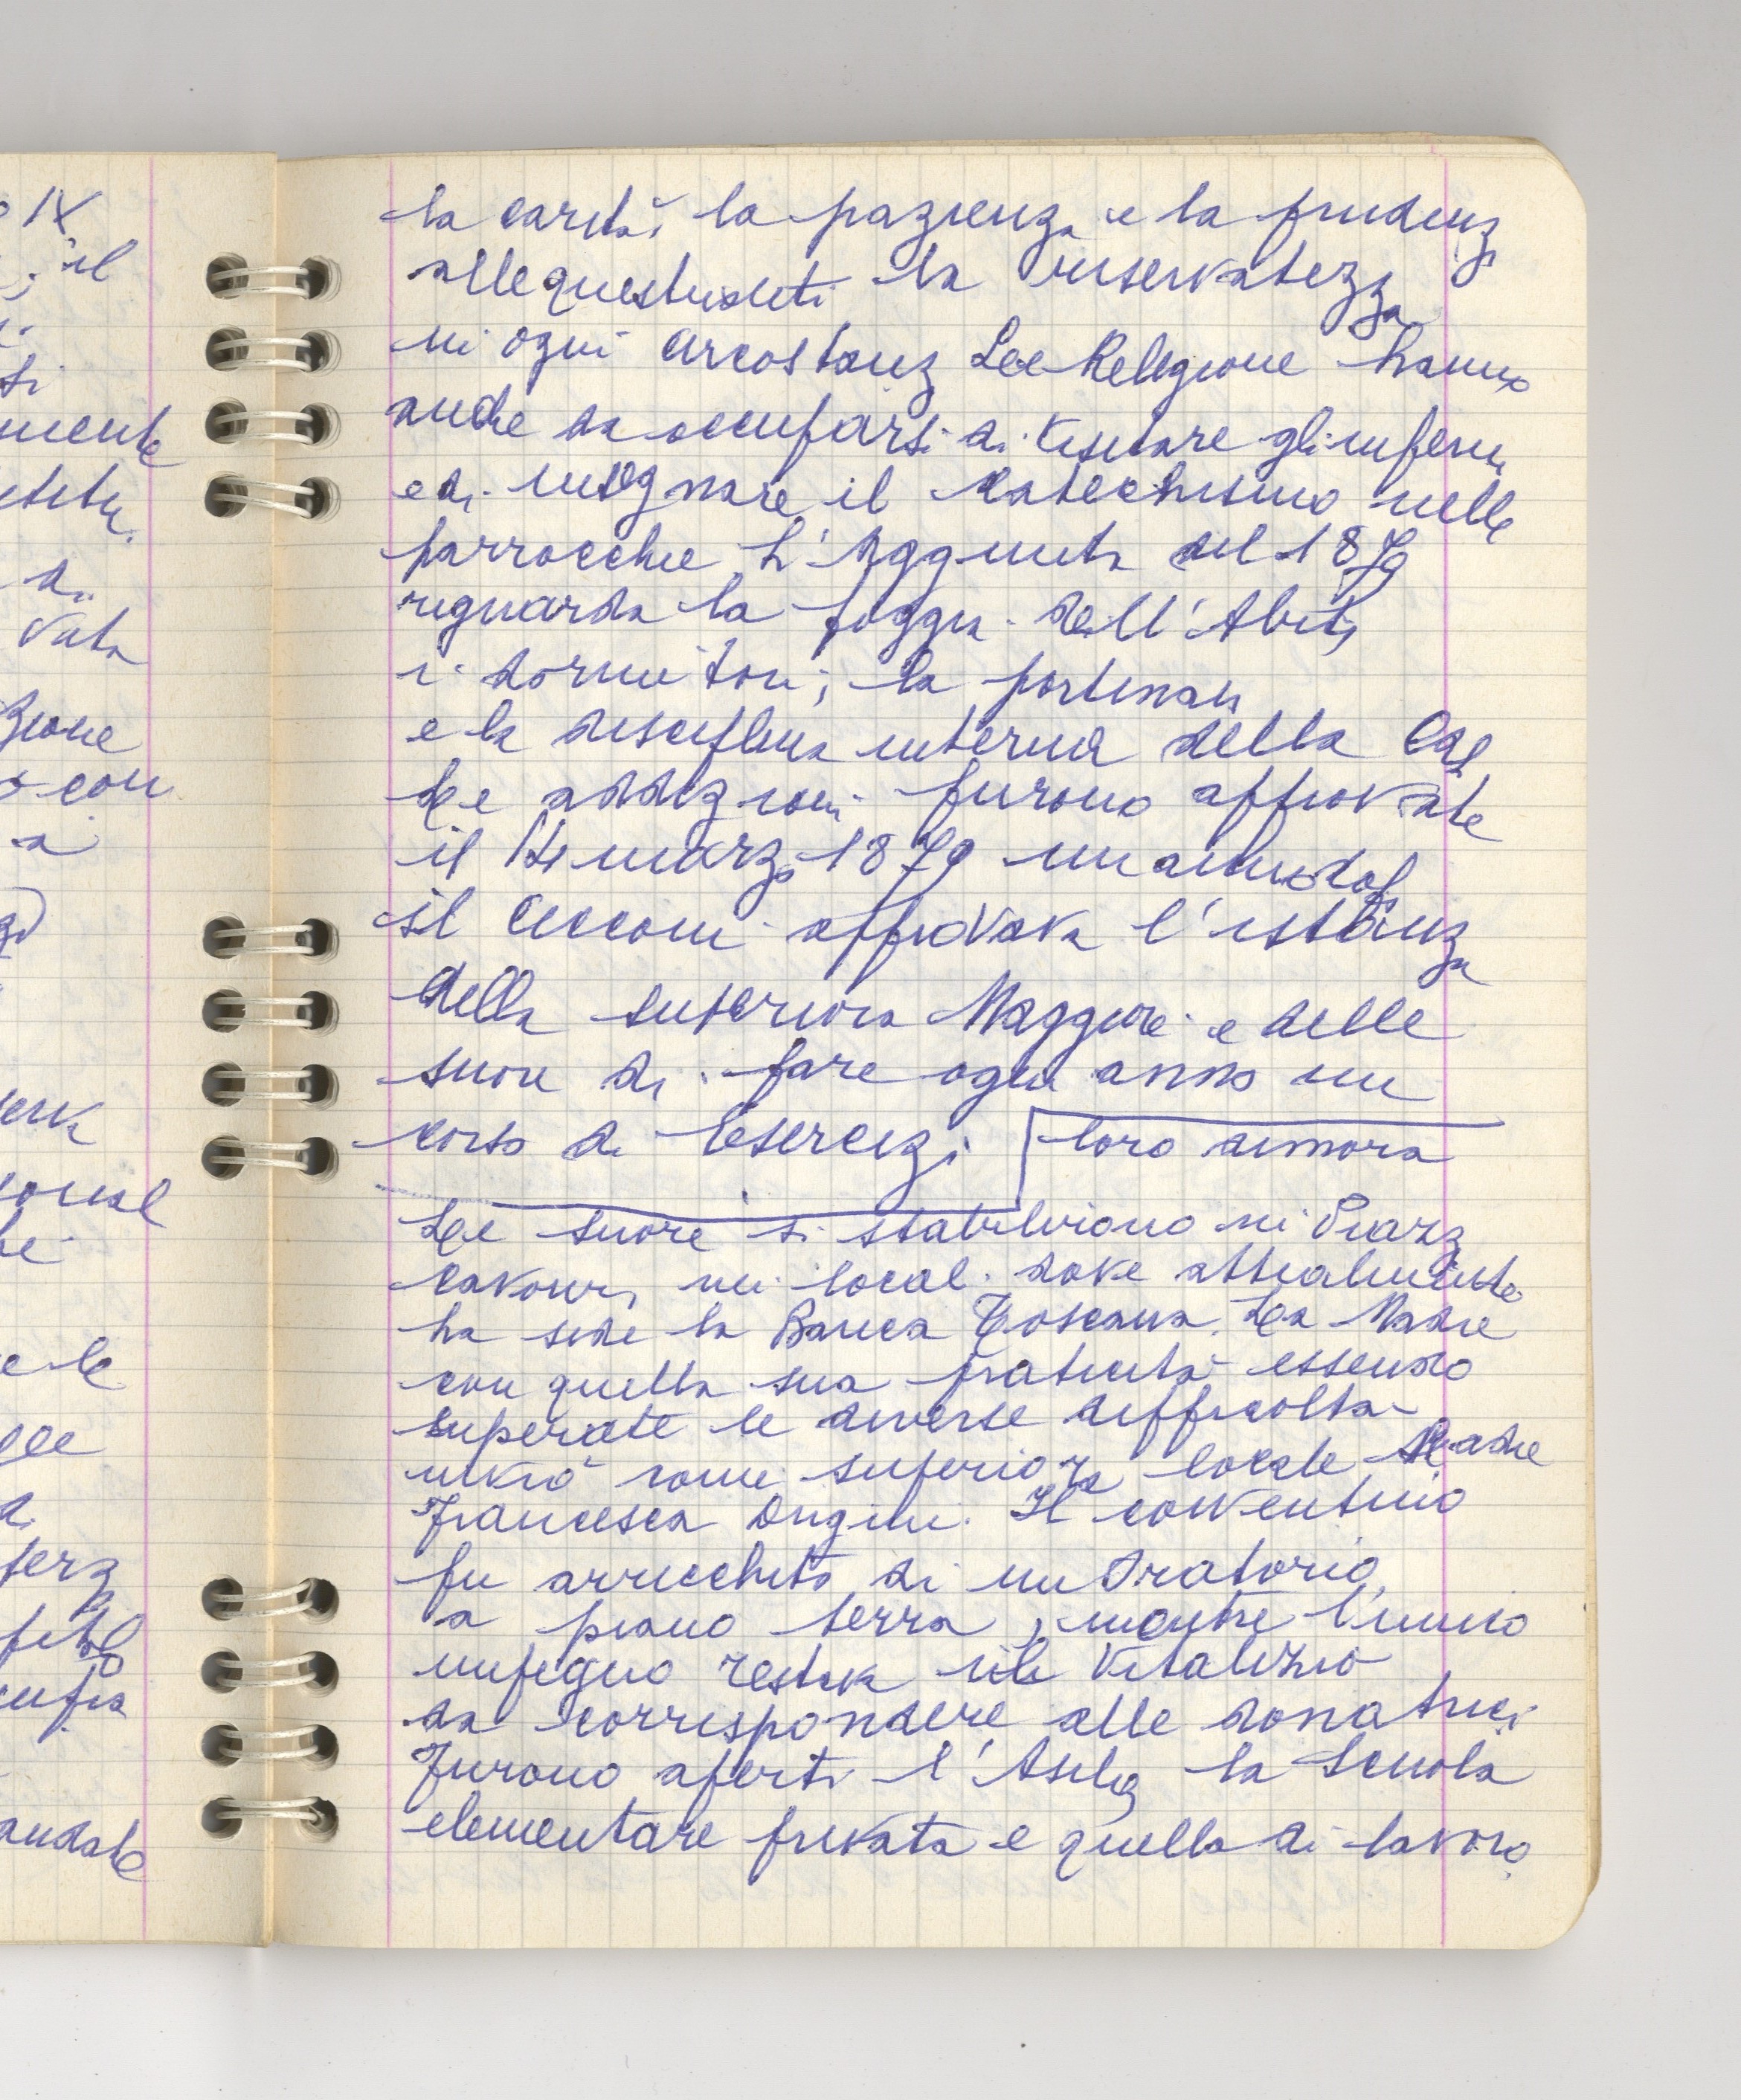 o IX
; il
si
mente
di
vata
zione
o con
a
e le
andate
la carità, la pazienza e la prudenza
alle questuanti la riservatezza
in ogni circostanz Le Religione hanno
anche da occuparsi di visitare gli infermi
e di insegnare il catechismo nelle
parrocchie L'Aggiunta del 1879
riguarda la foggia dell'Abito
i dormitori; la portineria
e la disciplina interna della Casa
Le addizioni furono approvate
il 14 marzo 1879 un anno dopo
il Cecconi approvava l'istanza
della superiora Maggiore e delle
suore di fare ogni anno un
corso di Esercizi loro dimora
Le suore si stabilirono in Piazza
Cavour, nei locali dove attualmente
ha sede la Banca Toscana. La Madre
con quella sua praticità essendo
superate le diverse difficoltà
inviò come superiora locale Madre
Francesca Origini. Il conventino
fu arricchito di un Oratorio,
a piano terra, mentre l'unico
impegno restava il vitalizio
da corrispondere alle donatrici
Furono aperti l'Asilo, la Scuola
elementare privata e quella di lavoro